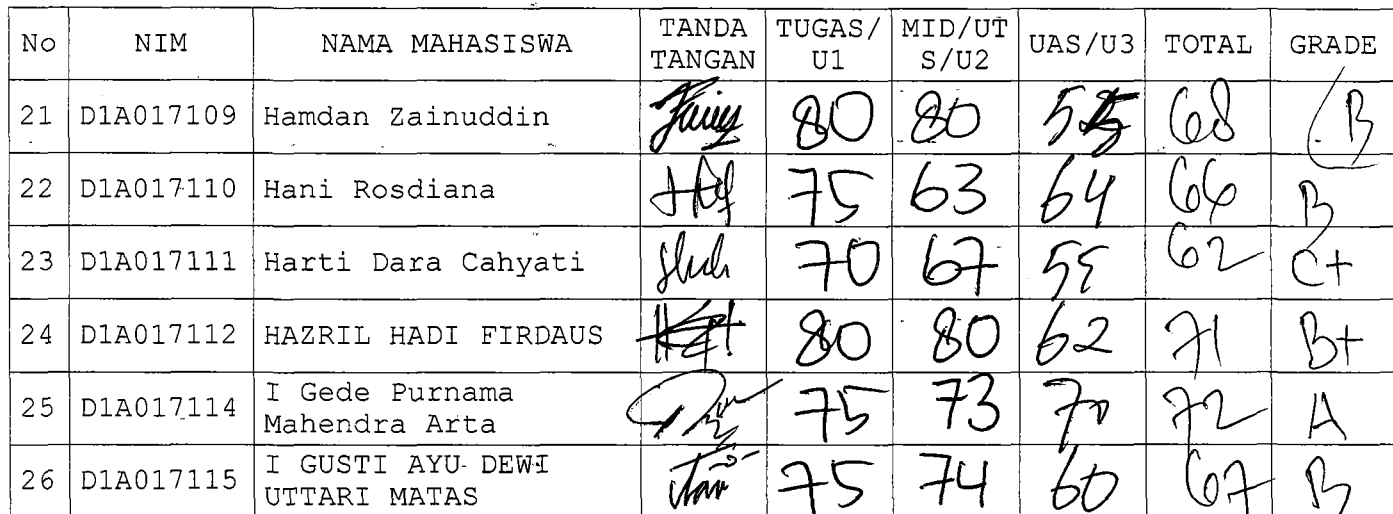 No NIM NAMA MAHASISWA TANDA TANGAN TUGAS/ U1 MID/UT S/U2 UAS/U3 TOTAL GRADE
21 D1A017109 Hamdan Zainuddin 80 80 55 68 B
22 D1A017110 Hani Rosdiana 75 63 64 66 B
23 D1A017111 Harti Dara Cahyati 70 67 55 62 C+
24 D1A017112 HAZRIL HADI FIRDAUS 80 80 62 71 B+
25 D1A017114 I Gede Purnama Mahendra Arta 75 73 70 72 A
26 D1A017115 I GUSTI AYU DEWI UTTARI MATAS 75 74 60 67 B